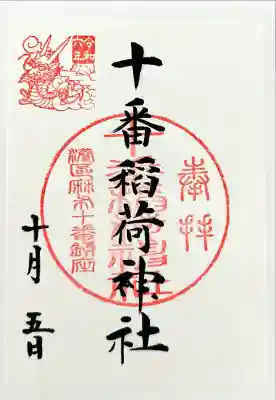 奉拝
十番稲荷神社
港区麻布十番鎮座
十月 五日
令和
六年